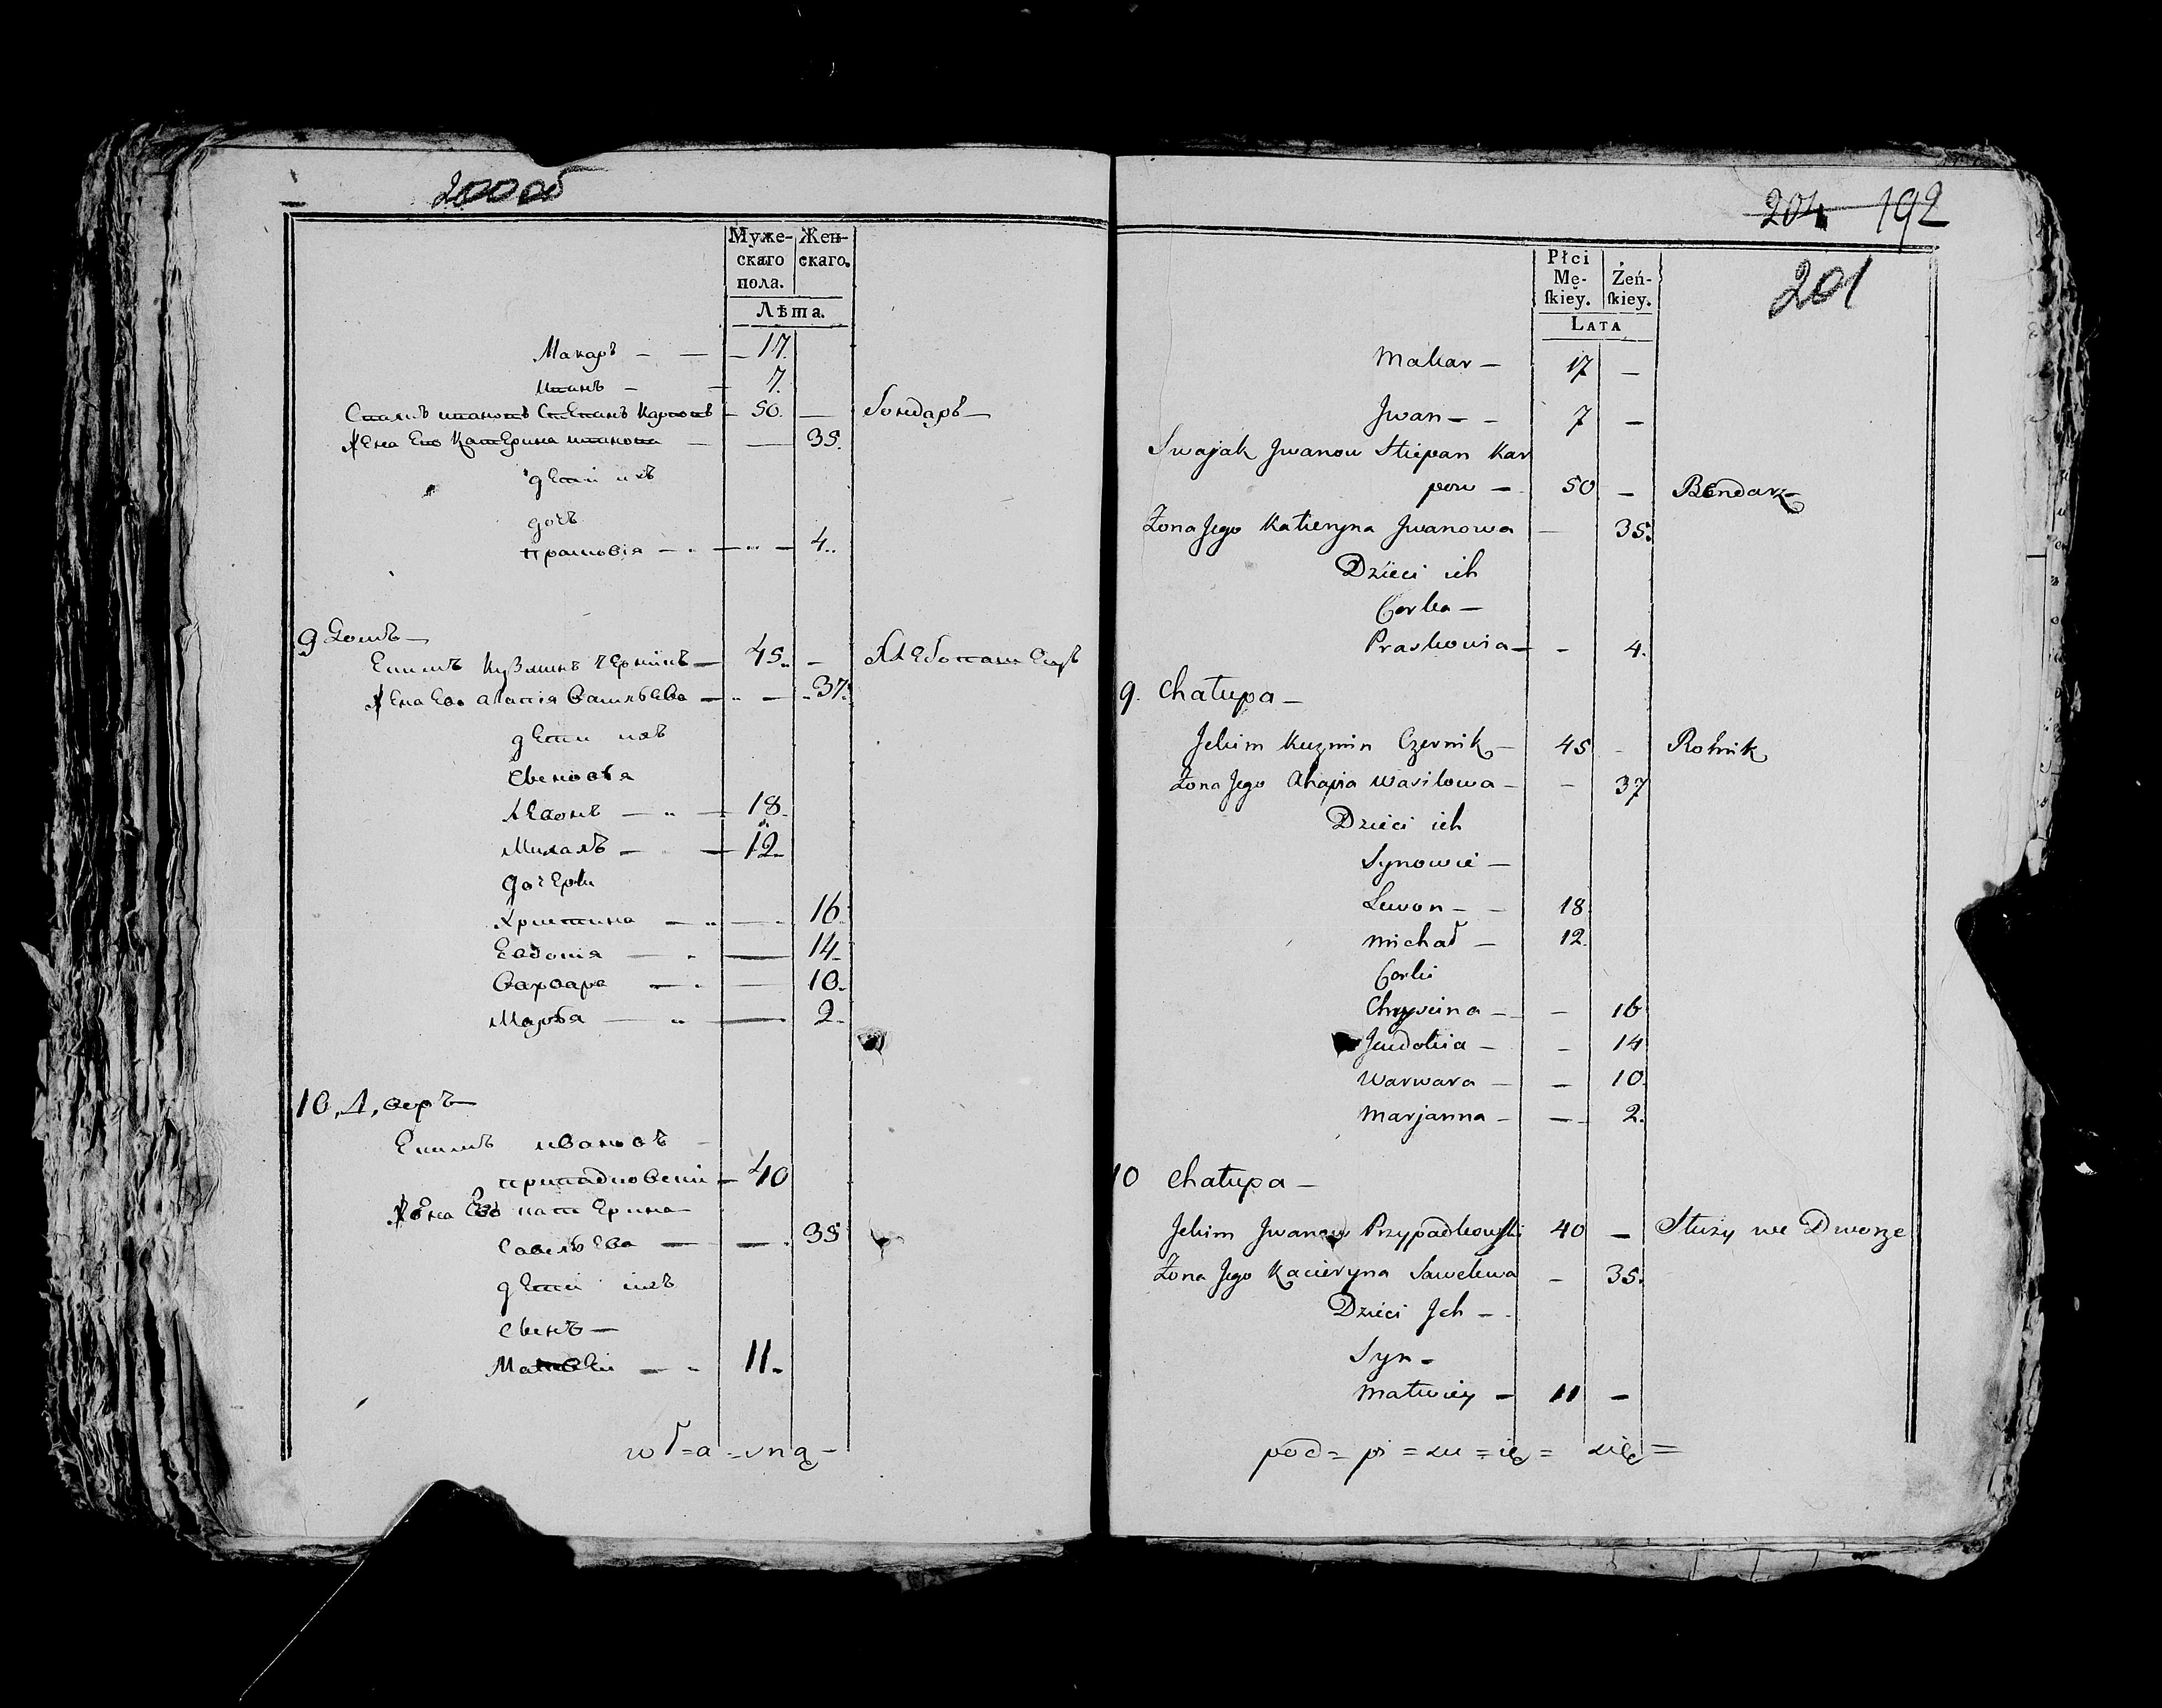 200 об
Муже- Жен-
скаго скаго.
пола.
Лѣта.
Макаръ — — — 17.
Иванъ — — 7.
Сваякъ ивановъ Степанъ Карповъ — 50. — бондаръ —
жена Его Катерина иванова — — 35.
дети ихъ
дочъ
Прасковія — — — 4..
9 Домъ —
Екимъ Кузминъ черникъ — 45.. — Хлебопашецъ
жена Его Агапія Василъева — — 37.
дети ихъ
Сыновъя
Левонъ — — 18.
Михалъ — — 12.
дочери
Христина — — 16.
Евдокія — — 14.
Варвара — — 10.
Маръя — — 2.
10, Д, воръ —
Екимъ ивановъ —
припадковски — 40
жена Его катерина
Савелъева — — 35
дети ихъ
Сынъ —
Матвей — — 11.
wł=a=sną —
204 192
201
Płci Żeń-
Mę- ſkiey.
ſkiey.
LATA
Makar — 17 —
Jwan — — 7 —
Swajak Jwanow Stiepan Kar
pow — 50 — Bondarz
Żona Jego Katieryna Jwanowa — 35.
Dzieci ich
Corka —
Praskowia — — 4.
9. Chałupa —
Jekim Kuzmin Czernik — 45 — Rolnik
Żona Jego Ahapia Wasilowa — — 37
Dzieci ich
Synowie —
Lewon — — 18
Michał — 12.
Corki
Chrystina — — 16
Jewdokia — — 14
Warwara — — 10.
Marjanna — — 2.
10 Chałupa —
Jekim Jwanow Przypadkowski 40 — Służy we Dworze
Żona Jego Kacieryna Sawelewa — 35.
Dzieci Jch —
Syn —
Matwiey — 11 —
pod = pi = su = ię = się =